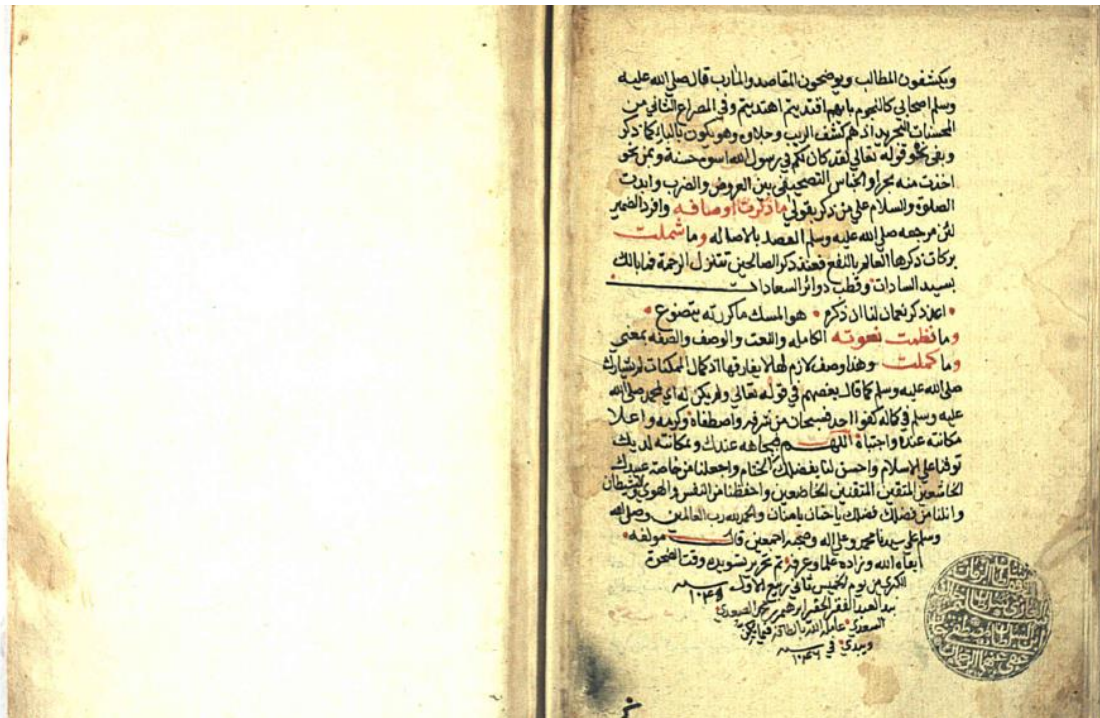 ويكشفون المطالب ويوضحون المقاصد والمأرب قال صلى الله عليه
وسلم اصحابي كالنجوم بايهم اقتديتم اهتديتم وفي المصراع الثاني من
المحسنات التجريد اذ هم كشف الريب وجلاؤه وهو يكون بالباء كما ذكر
وبفي نحو قوله تعالى لقد كان لكم في رسول الله اسوة حسنة وبمن نحو
اخذت منه بحرا والجناس التصحيفي بين العروض والضرب وابدت
الصلوة والسلام على من ذكر بقولي ما ذكرت اوصافه وافرد الضمير
لان مرجعه صلى الله عليه وسلم القصد بالاصاله وما شملت
بركات ذكرها العالم بالنفع فعند ذكر الصالحين تتنزل الرحمة فما بالك
بسيد السادات وقطب دوائر السعادات
اعد ذكر نعمان لنا ان ذكره هو المسك ما كررته يتضوع
وما نظمت نعوته الكامله والنعت والوصف والصفه بمعنى
وما كملت وهذا وصف لازم لها لا يفارقها اذ كمال الممكنات لم يشارك
صلى الله عليه وسلم كما قال بعضهم في قوله تعالى ولم يكن له اي لمحمد صلى الله
عليه وسلم في كماله كفوا احد فسبحان من شرفه واصطفاه وكرمه واعلا
مكانته عنده واجتباه اللهم فبجاهه عندك وبمكانته لديك
توفنا على الاسلام واحسن لنا بفضلك الختام واجعلنا من خاصة عبيدك
الخاشعين المتقين المتقنين الخاضعين واحفظنا من النفس والهوى والشيطان
وانلنا من فضلك فضلك يا حنان يا منان والحمد لله رب العالمين وصلى الله
وسلم على سيدنا محمد وعلى اله وصحبه اجمعين قال مولفه
ابقاه الله وزاده علما وعرفه تم تحرير تسويده وقت الضحوة
الكبرى من يوم الخميس ثاني ربيع الاول سنه
بيد العبد الفقير الحقير ابرهيم بن محمد الصعيدي
السعدي عامله الله بالطافه فيما
ويبدي في سنه ١٠٤٦